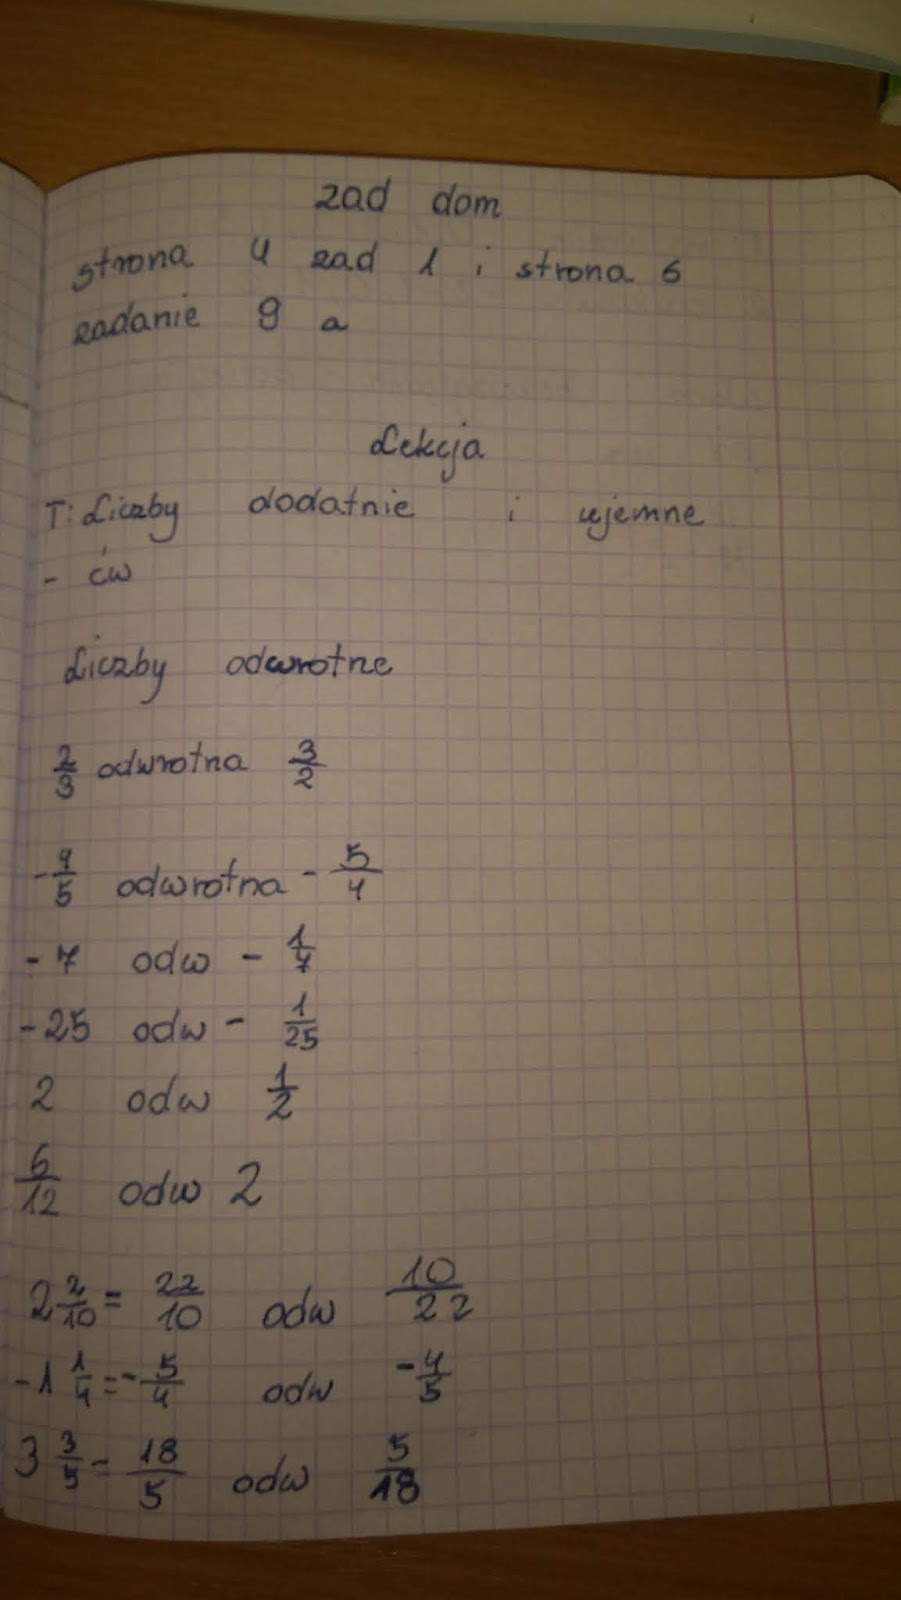 zad dom
strona 4 zad 1 i strona 6
zadanie 9 a
Lekcja
T: Liczby dodatnie i ujemne
- ćw
Liczby odwrotne
2/3 odwrotna 3/2
-4/5 odwrotna - 5/4
- 7 odw - 1/7
- 25 odw - 1/25
2 odw 1/2
6/12 odw 2
2 2/10 = 22/10 odw 10/22
-1 1/4 = - 5/4 odw -4/5
3 3/5 = 18/5 odw 5/18